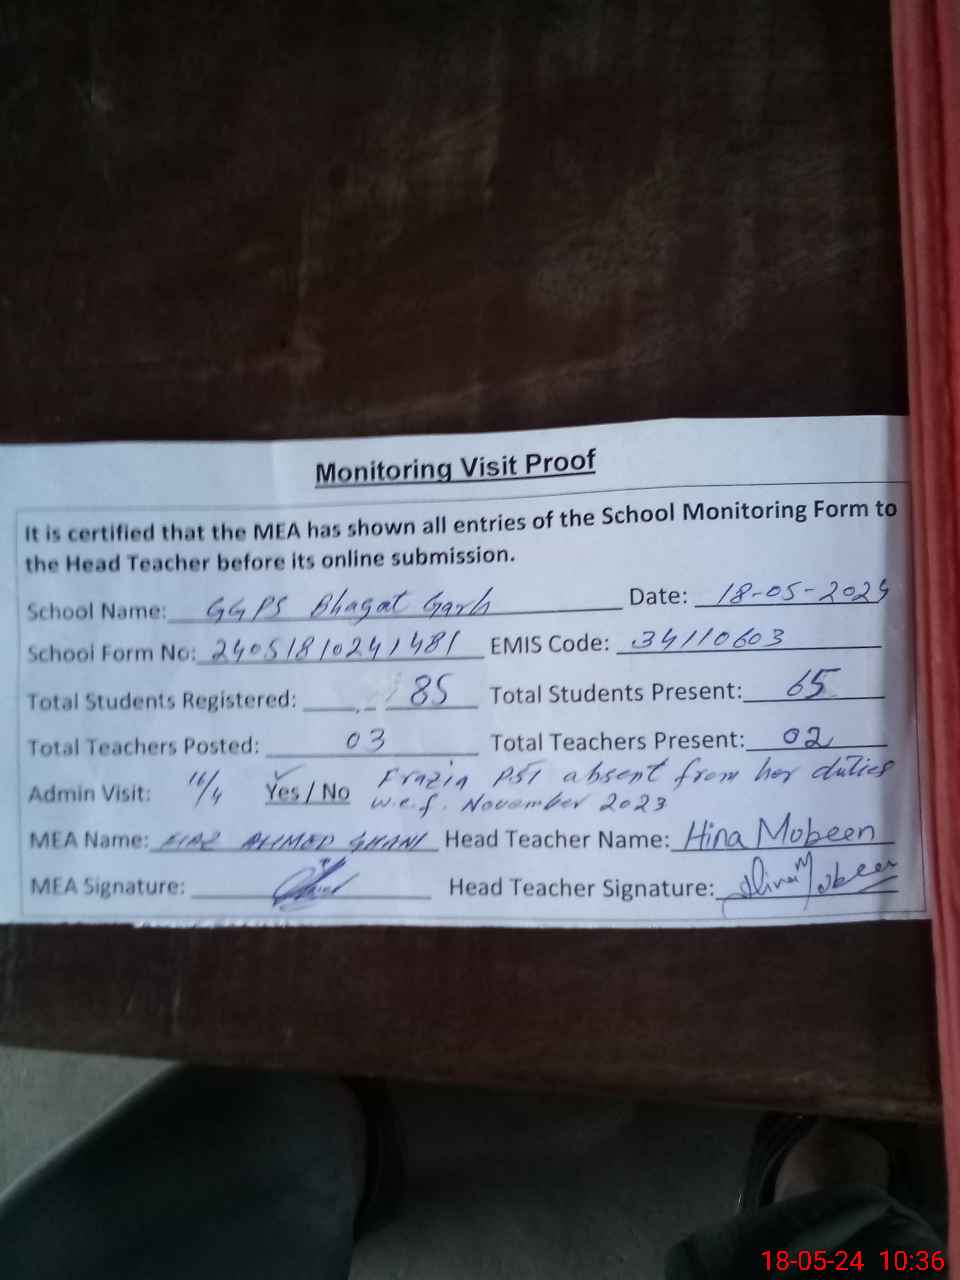 Monitoring Visit Proof
It is certified that the MEA has shown all entries of the School Monitoring Form to
the Head Teacher before its online submission.
School Name: GGPS Bhagat Garh Date: 18-05-2024
School Form No: 24051810241481 EMIS Code: 34110603
Total Students Registered: 85 Total Students Present: 65
Total Teachers Posted: 03 Total Teachers Present: 02
Admin Visit: 16/4 Yes / No Frazia PST absent from her duties
w.e.f. November 2023
MEA Name: AHMED GHANI Head Teacher Name: Hina Mobeen
MEA Signature: Head Teacher Signature: Hina Mobeen
18-05-24 10:36